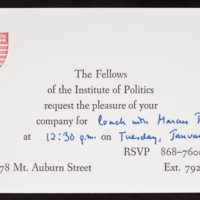 The Fellows
of the Institute of Politics
request the pleasure of your
company for Lunch with Marcus
at 12:30 p.m. on Tuesday,
RSVP 868-760
78 Mt. Auburn Street Ext. 792